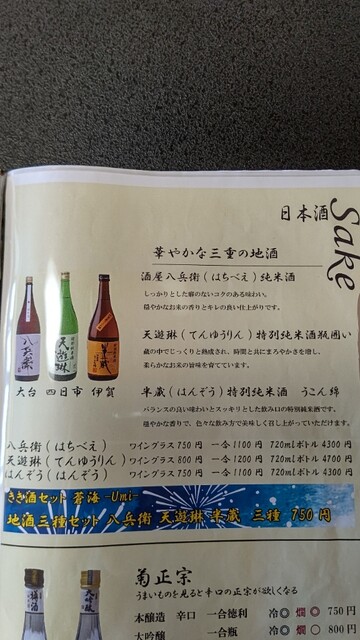 日本酒 Sake
華やかな三重の地酒
酒屋八兵衛(はちべえ)純米酒
しっかりとした癖のないコクのある味わい。
穏やかなお米の香りとキレの良い仕上がりです。
天遊琳(てんゆうりん)特別純米酒瓶囲い
蔵の中でじっくりと熟成され、時間と共にまろやかさを増し、
柔らかなお米の旨味を育てています。
大台 四日市 伊賀
半蔵(はんぞう)特別純米酒 うこん錦
バランスの良い味わいとスッキリとした飲み口の特別純米酒です。
穏やかな香りで、色々な飲み方で美味しく召し上がっていただけます。
八兵衛(はちべえ) ワイングラス 750円 一合 1100円 720mlボトル 4300円
天遊琳(てんゆうりん) ワイングラス 800円 一合 1200円 720mlボトル 4700円
半蔵(はんぞう) ワイングラス 750円 一合 1100円 720mlボトル 4300円
きき酒セット 蒼海 -Umi-
地酒三種セット 八兵衛 天遊琳 半蔵 三種 750円
菊正宗
うまいものを見ると辛口の正宗が欲しくなる
本醸造 辛口 一合徳利 冷◎ 燗◎ 750円
大吟醸 一合瓶 冷◎ 燗○ 800円